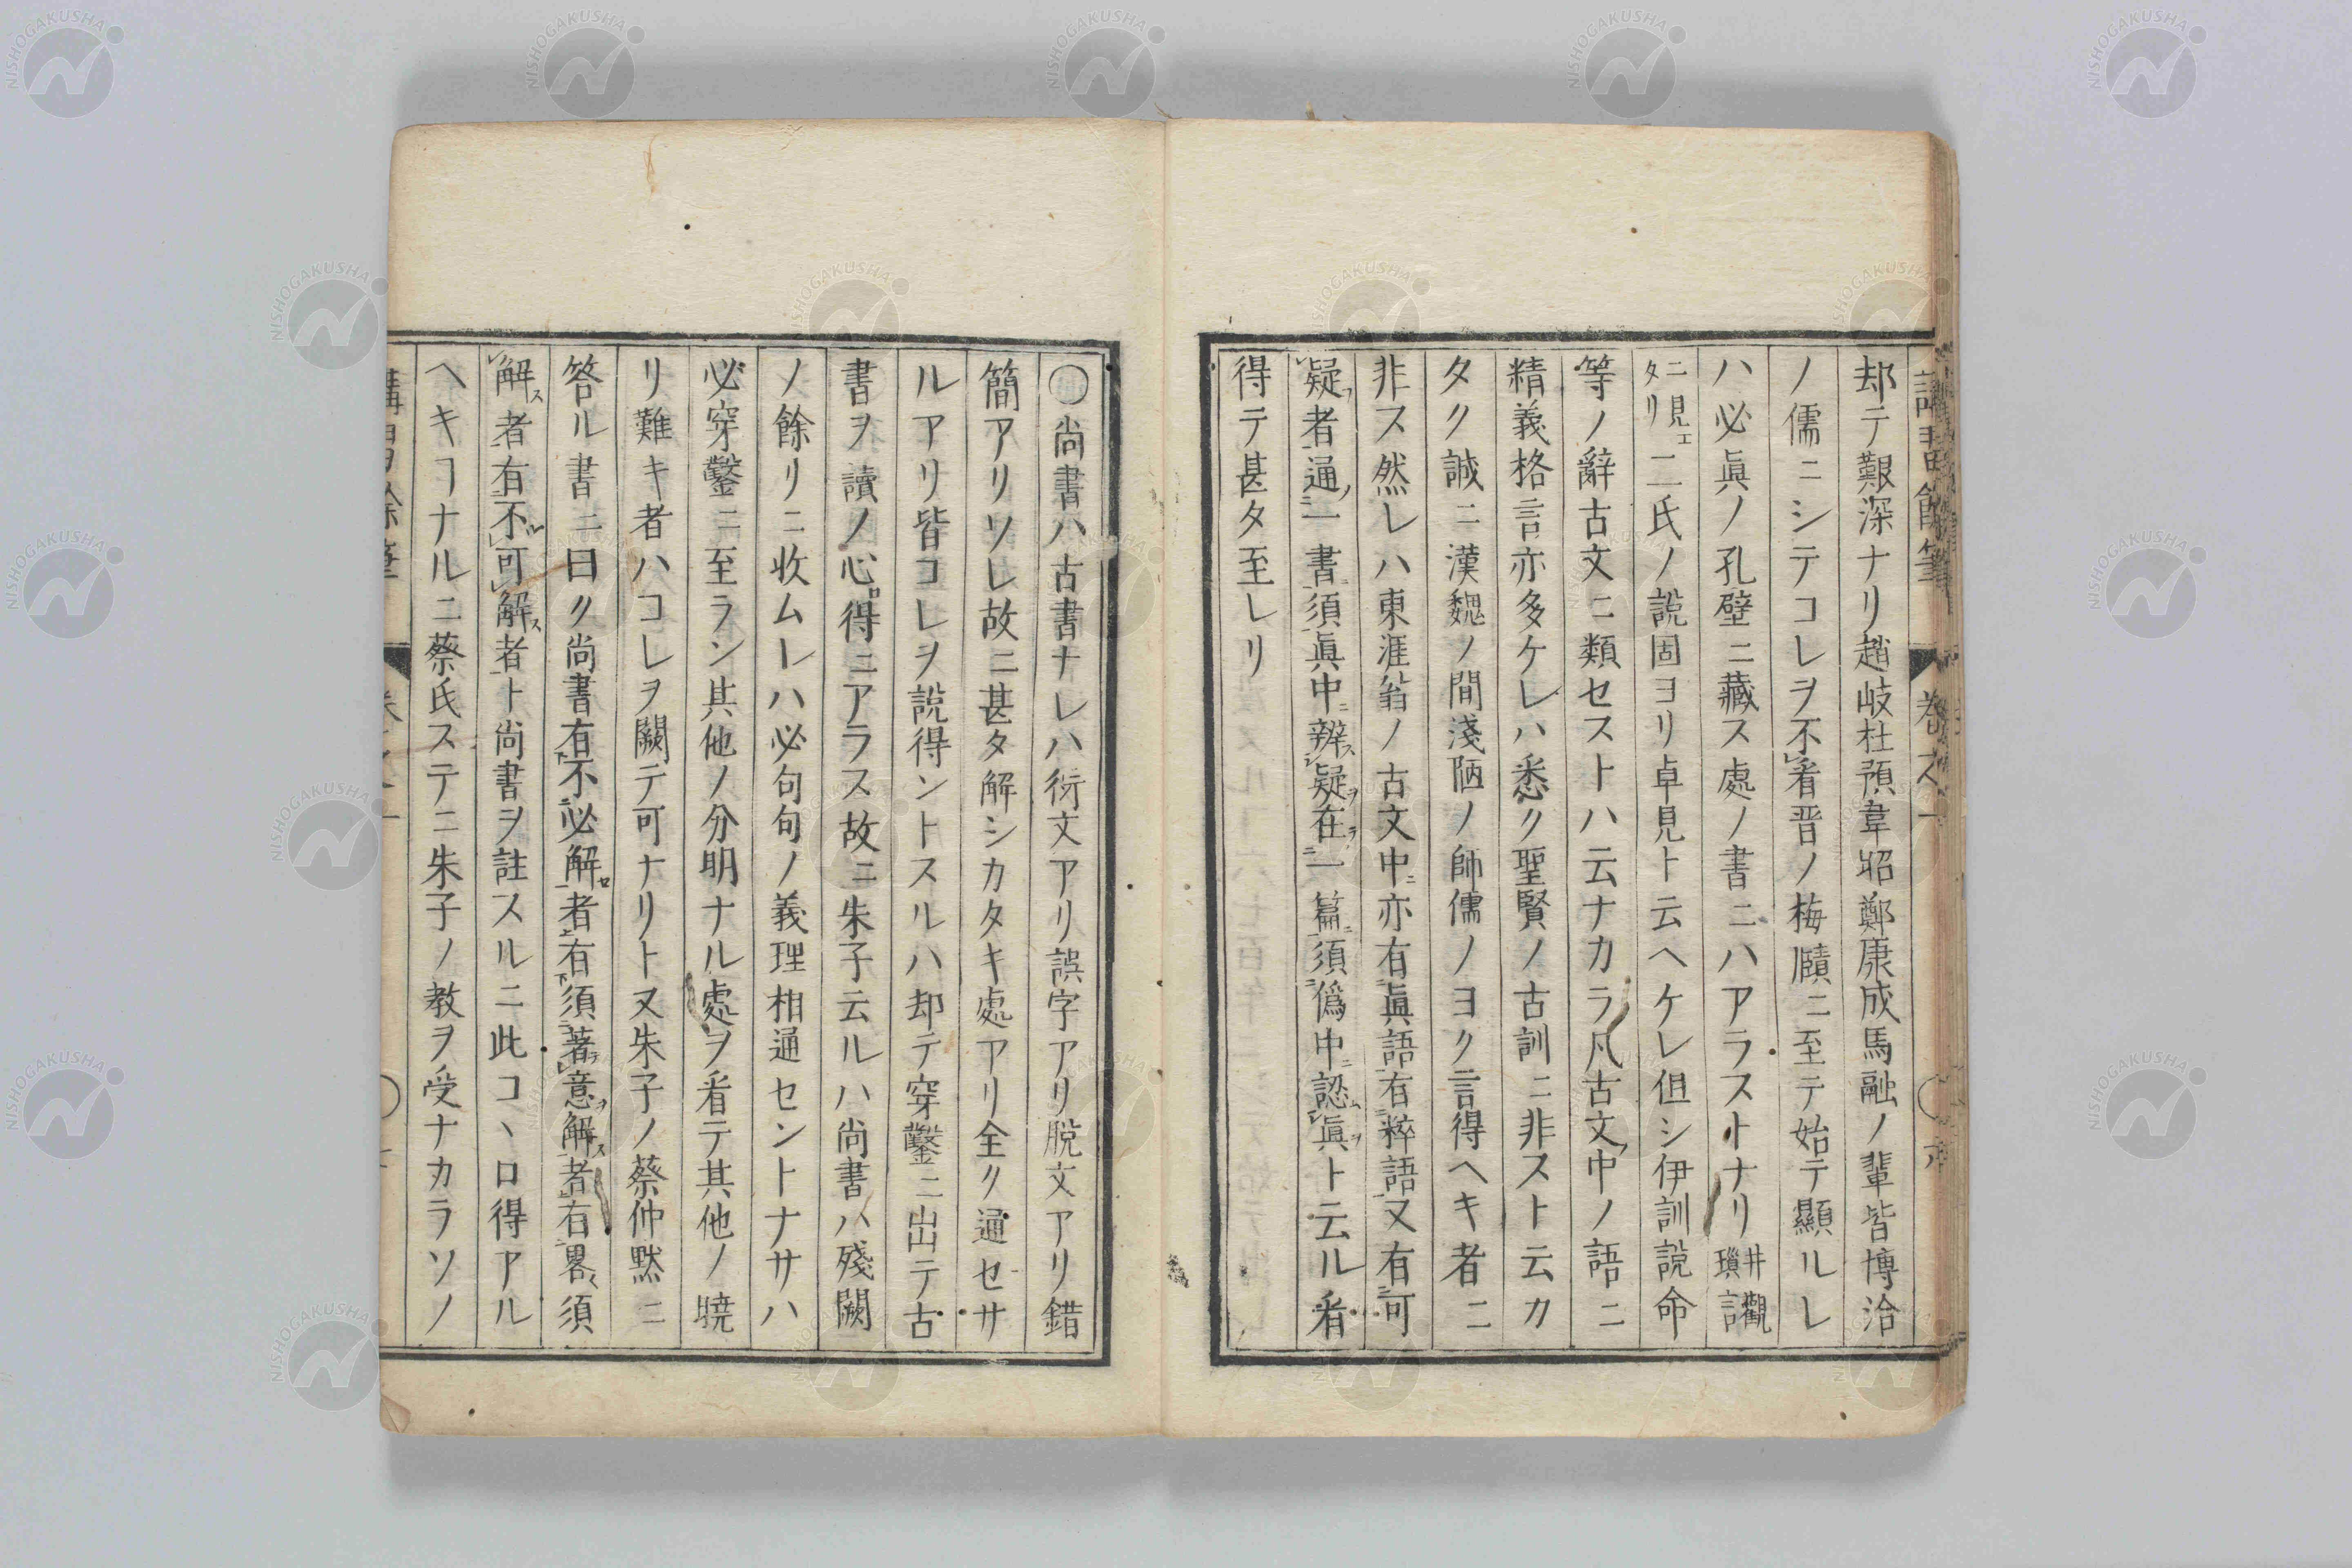 却テ艱深ナリ趙岐杜預韋昭鄭康成馬融ノ輩皆博洽
ノ儒ニシテコレヲ不看晋ノ梅賾ニ至テ始テ顯ルレ
ハ必眞ノ孔壁ニ藏ス處ノ書ニハアラストナリ井觀瑣言
ニ見エタリ二氏ノ說固ヨリ卓見ト云ヘケレ但シ伊訓說命
等ノ辭古文ニ類セストハ云ナカラ凡古文中ノ語ニ
精義格言亦多ケレハ悉ク聖賢ノ古訓ニ非ストト云カ
タク誠ニ漢魏ノ間淺陋ノ師儒ノヨク言得ヘキ者ニ
非ス然レハ東涯翁ノ古文中ニ亦有眞語有粹語又有可
疑者通一書須眞中辨疑在一篇須僞中認眞ト云ル看
得テ甚タ至レリ
〇尚書ハ古書ナレハ衍文アリ誤字アリ脫文アリ錯
簡アリソレ故ニ甚タ解シカタキ處アリ全ク通セサ
ルアリ皆コレヲ說得ントスルハ却テ穿鑿ニ出テ古
書ヲ讀ノ心得ニアラス故ニ朱子云ルハ尚書ハ殘闕
ノ餘リニ收ムレハ必句句ノ義理相通センドナサハ
必穿鑿ニ至ラン其他ノ分明ナル處ヲ看テ其他ノ曉
リ難キ者ハコレヲ闕テ可ナリト又朱子ノ蔡仲默ニ
答ル書ニ曰ク尚書有不必解者有須著意解者有畧須
解者有不可解者ト尚書ヲ註スルニ此コヽロ得アル
ヘキコナルニ蔡氏ステニ朱子ノ教ヲ受ナカラソノ